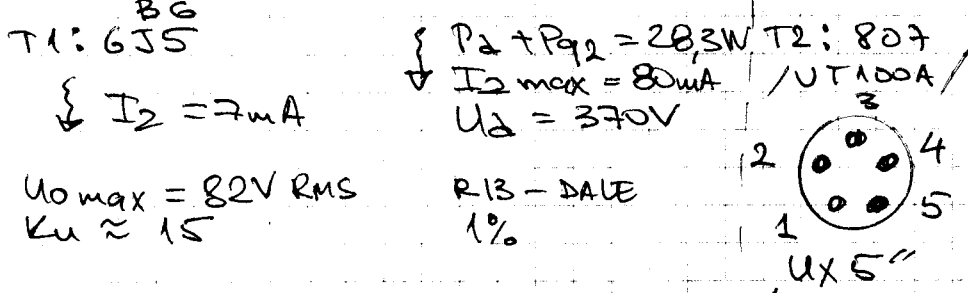 BG
T1: 6J5
I2 = 7mA
Uo max = 82V RMS
Ku ≈ 15
Pd + Pg2 = 28,3W
I2 max = 80mA
Ud = 370V
R13 - DALE
1%
T2: 807
/UT100A/
3
2 4
1 5
UX5"